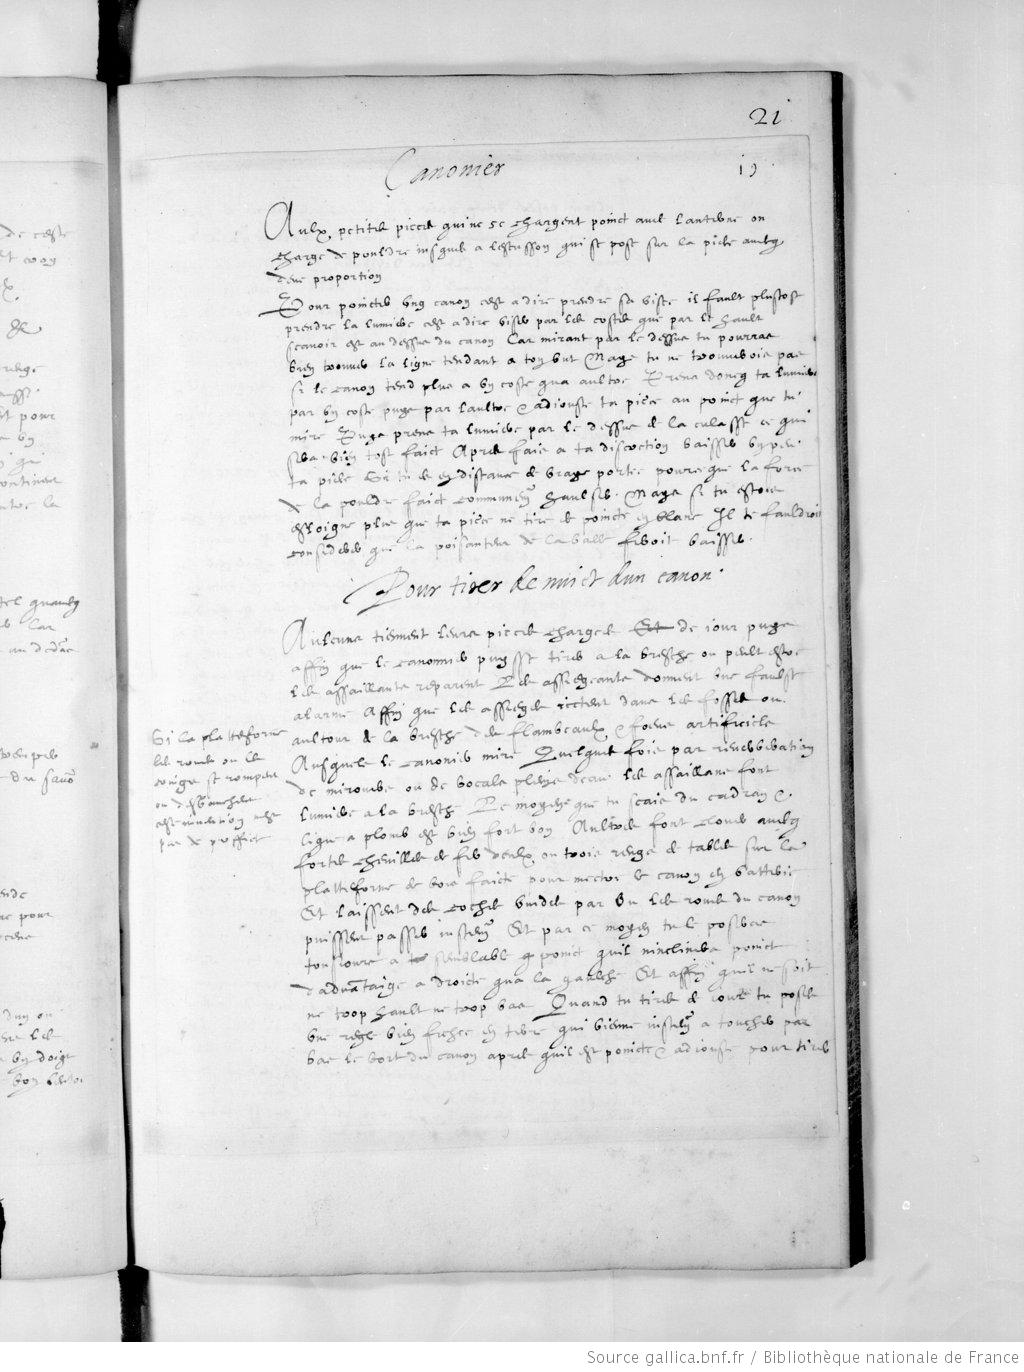 21
Canonier
19
Aulx petites pieces qui ne se chargent poinct avec lanterne on
charge de pouldre jusques a lescusson qui est posé sur la piece avecq
deue proportion
Pour poincter ung canon cest a dire prendre sa visee il fault plustost
prendre la lumiere cest a dire viser par les costes que par le hault
scavoir est au dessus du canon Car mirant par le dessus tu pourras
bien trouver la ligne tendant a ton but Mays tu ne trouverois pas
si le canon tend plus a un coste qua aultre Prens doncq ta lumiere
par un coste puys par laultre & adiouste ta piece au poinct que tu
mire Puys prens ta lumiere par le dessus de la culasse ce qui
sera bien tost faict Apres fais a ta discretion baisser un peu
ta piece Si tu es en distance de vraye portee pource que la force
de la pouldre faict communem haulser Mays si tu estois
esloigne plus que ta piece ne tire de poincte en blanc Il te fauldroit
considerer que la poisanteur de la balle feroit baisser
Pour tirer de nuict dun canon
Aulcuns tiennent leurs pieces chargees Et de iour puys
affin que le canonnier puysse tirer a la bresche ou peult estre
les assaillants reparent Les assiegeants donnent une faulse
alarme Affin que les assieges iectent dans les fosses ou
autour de la bresche des flambeaulx & foeus artificiels
Ausquels le canonier mire Quelques fois par reverberation
de mirouers ou de bocals pleins deau les assaillans font
lumiere a la bresche Le moyen que tu scais du cadran &
ligne a plomb est bien fort bon Aultres font clouer avecq
fortes chevilles de fer deulx ou trois renges de tables sur la
platteforme de bois faicte pour mectre le canon en batterie
Et laissent des coches vuides par ou les roues du canon
puissent passer justem Et par ce moyen tu le poseras
tousiours a semblable poinct quil ninclinera poinct
dadvantaige a droicte qua la gauche Et affin quil ne soit
ne trop hault ne trop bas Quand tu tires de iour tu poses
une regle bien fichee en terre qui vienne justem a toucher par
bas le bort du canon apres quil est poincte & adiouste pour tirer
Si la platteforme
les roues ou les
rouages se rompent
ou desbauchent
ceste invention nest
pas de proffict
Source gallica.bnf.fr / Bibliothèque nationale de France